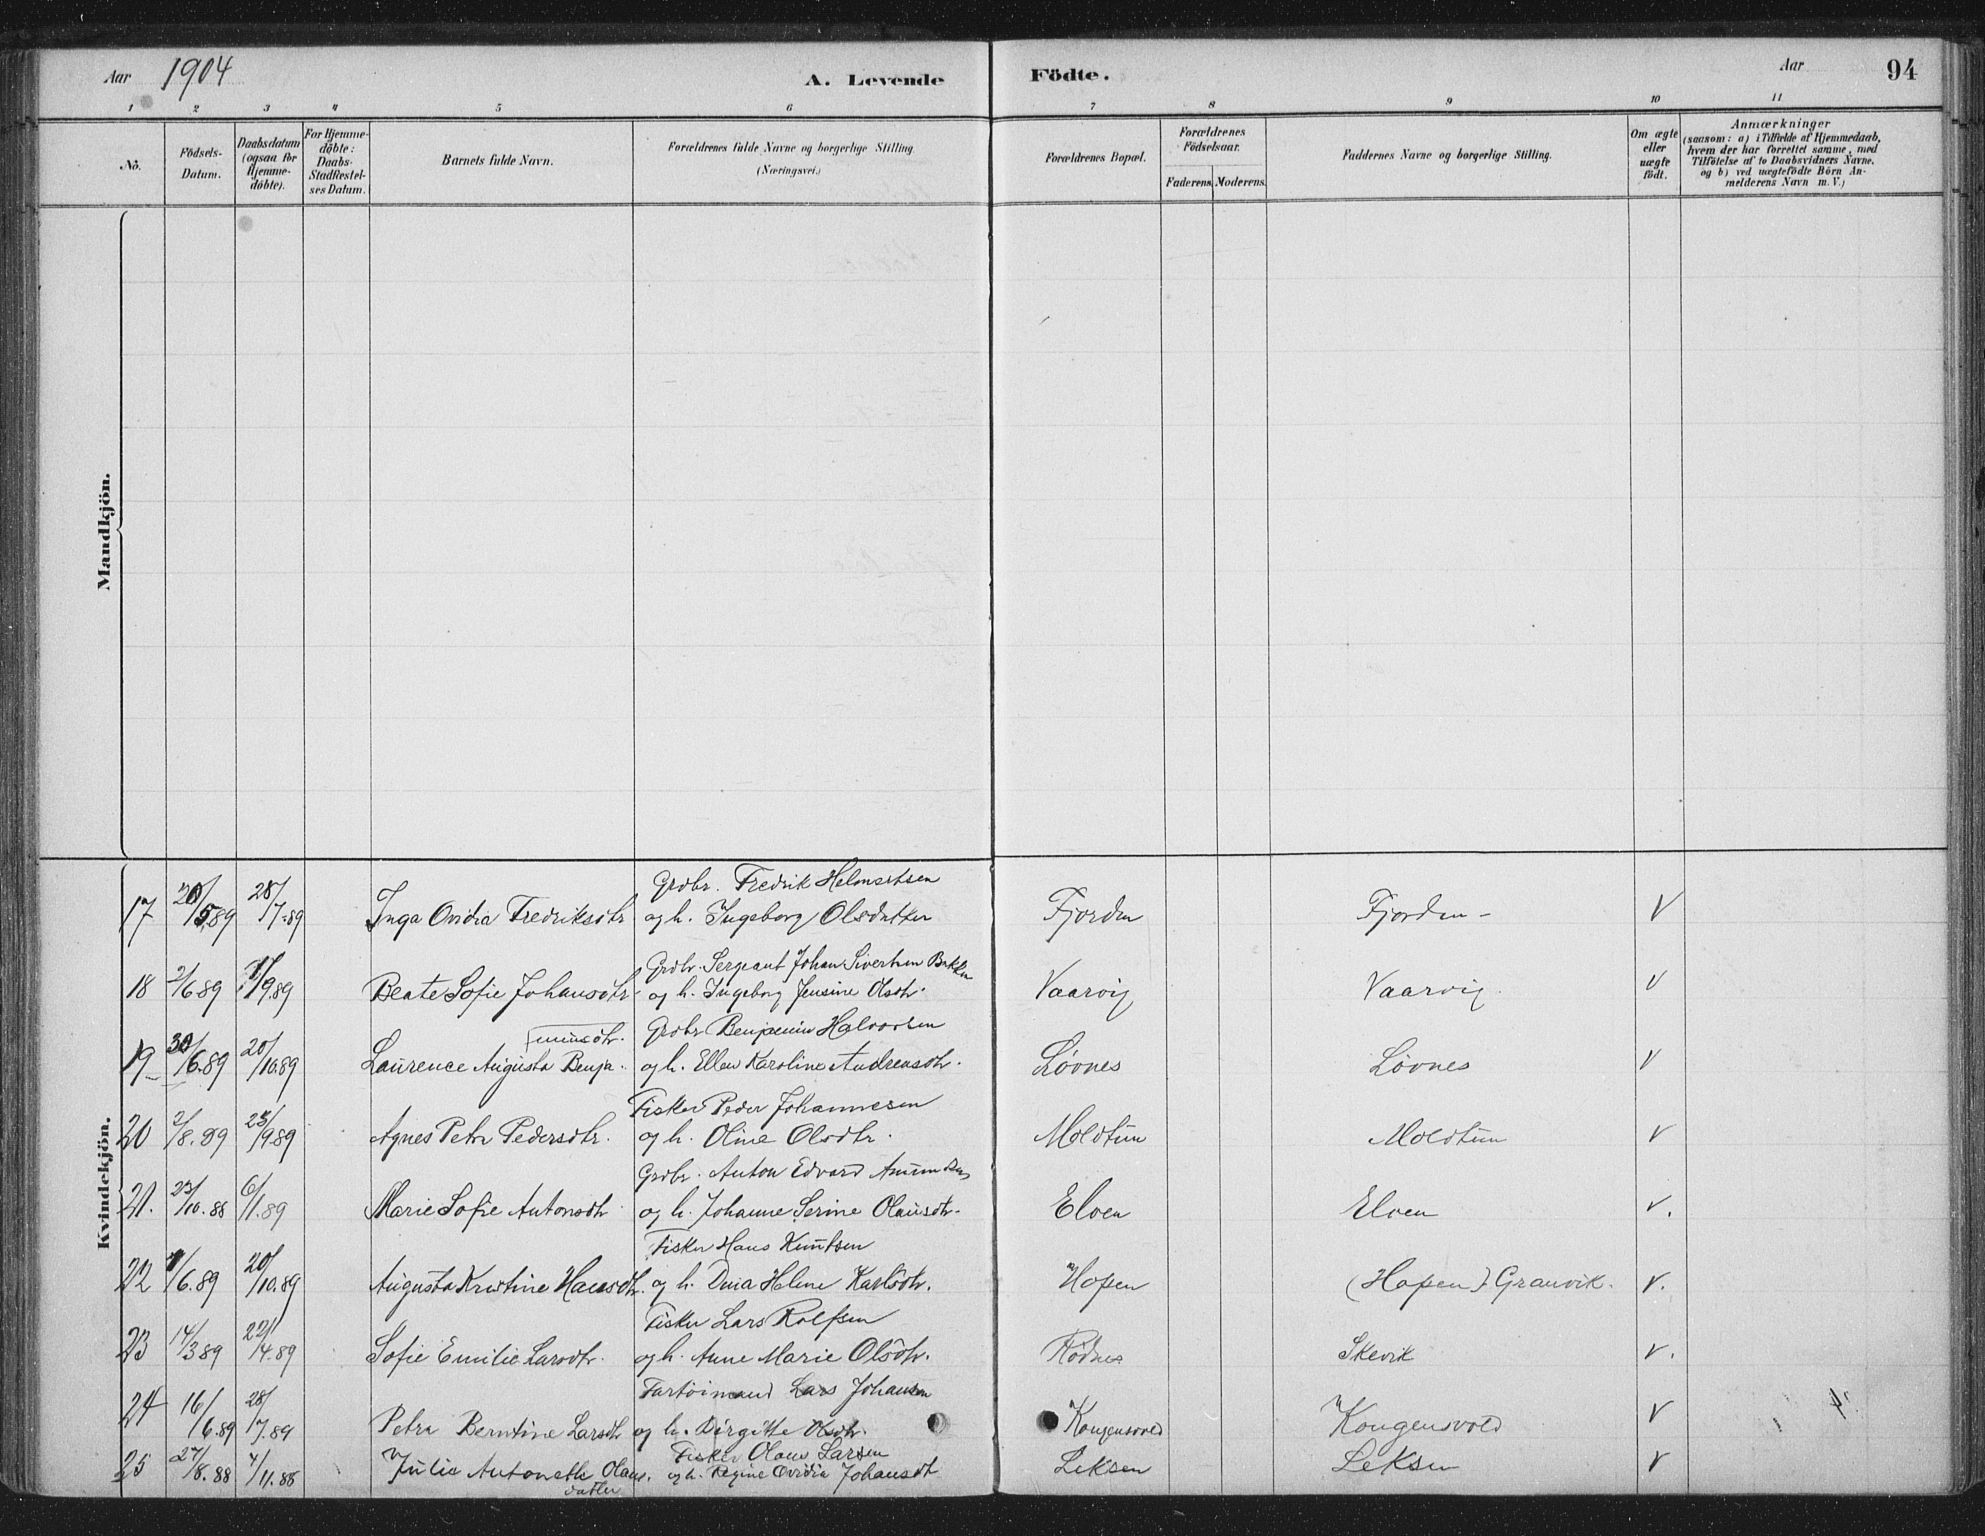 Aar 1904 A. Levende Födte. Aar 94
1 2 3 4 5 6 7 8 9 10 11
No.
Födsels-Datum.
Daabsdatum (ogsaa for Hjemme-döbte).
For Hjemme-döbte: Daabs-Stadfestel-ses Datum.
Barnets fulde Navn.
Forældrenes fulde Navne og borgerlige Stilling. (Næringsvei.)
Forældrenes Bopæl.
Forældrenes Födselsaar.
Faderens. Moderens.
Faddernes Navne og borgerlige Stilling.
Om ægte eller uægte födt.
Anmærkninger
(saasom: a) i Tilfælde af Hjemmedaab, hvem der har forrettet samme, med Tilföielse af to Daabsvidners Navne, og b) ved uægtefödte Börn An-melderens Navn m. V.)
Mandkjön.
Kvindekjön.
Grdbr. Fredrik Helmertsen
17 20/5 89 28/7-89 Inga Ovidia Fredriksdtr og h. Ingeborg Olsdatter Fjorden Fjorden - V
Grdbr. Sergeant Johan Sivertsen Bakken
18 2/6 89 1/9.89 Beate Sofie Johansdtr. og h. Ingeborg Jensine Olsdtr. Vaarvig Vaarvig. V
minsdtr. Grdbr Benjamin Halvorsen
19 30/6.89 20/10.89 Laurence Augusta Benja- og h. Ellen Karoline Andreasdtr. Løvnes Løvnes V
Fisker Peder Johannesen
20 2/8.89 25/9.89 Agnes Petra Pedersdtr. og h. Oline Olsdtr. Moldtun Moldtun V
Grdbr. Anton Edvard Amundsen
21. 23/10.88 6/1.89 Marie Sofie Antonsdtr og h. Johanne Serine Olausdtr. Elven Elven V.
Fisker Hans Knutsen
22 /6.89 20/10.89 Augusta Kristine Hansdtr. og h. Helene Karlsdtr. Hopen (Hopen) Granvik. V.
Fisker Lars Rolfsen
23 14/3 89 22/4.89 Sofie Emilie Larsdtr. og h. Anne Marie Olsdtr. Rødnes Skevik V.
Lars Johansen
24 16/6.89 28/7.89 Petra Berntine Larsdtr og h. Birgitte Olsdtr. Kongensvold Kongensvold V
Fisker Olaus Larsen
25 27/8.88 4/11.88 Julie Antonette Olaus- og h. Regine Ovidia Johansdt Leksen Leksen V
datter